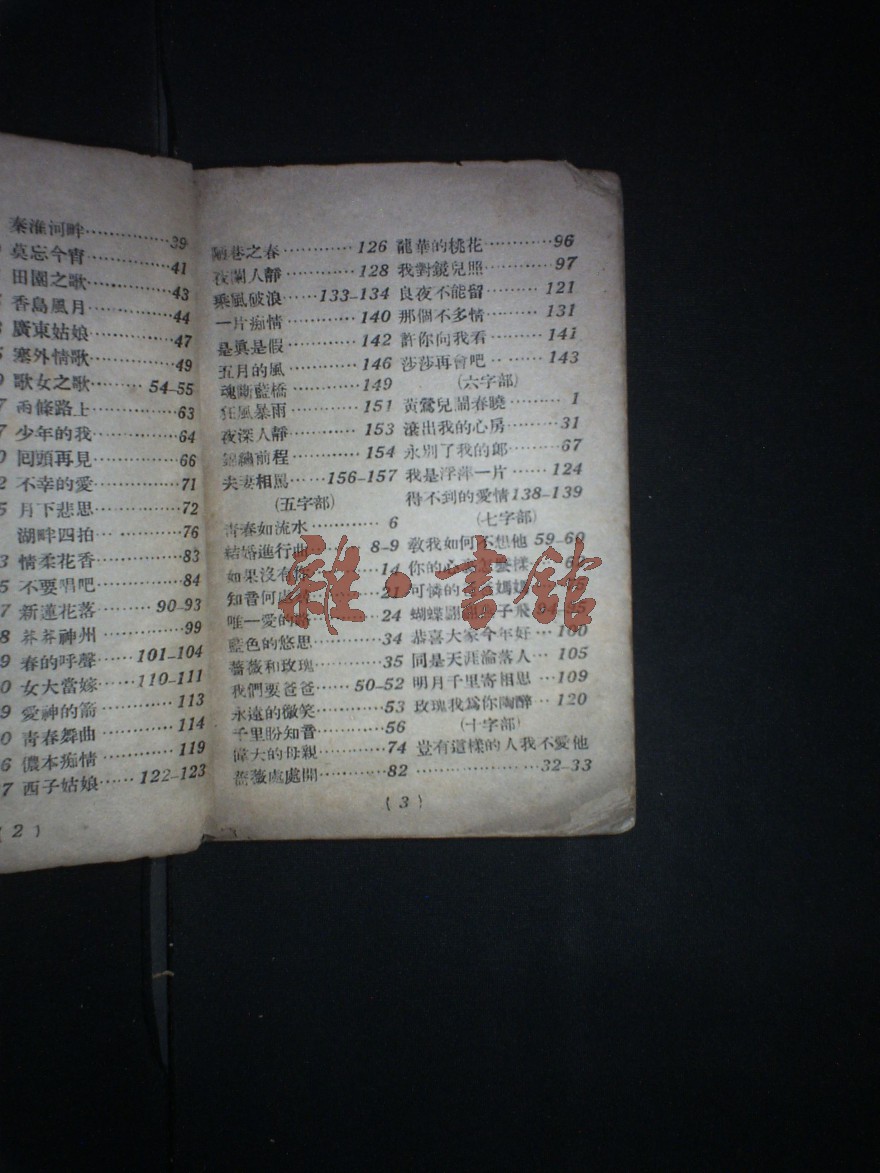 秦淮河畔……………39
莫忘今宵…………41
田園之歌…………43
香島風月…………44
廣東姑娘…………47
塞外情歌…………49
歌女之歌……… 54–55
兩條路上…………63
少年的我…………64
囘頭再見…………66
不幸的愛…………71
月下悲思…………72
湖畔四拍…………76
情柔花香…………83
不要唱吧…………84
新蓮花落…… 90–93
莽莽神州…………99
春的呼聲……101–104
女大當嫁……110–111
愛神的箭…………113
青春舞曲…………114
儂本痴情…………119
西子姑娘……122–123
( 2 )
陋巷之春…………126
夜闌人靜…………128
乘風破浪……133–134
一片痴情…………140
是眞是假…………142
五月的風…………146
魂斷藍橋…………149
狂風暴雨…………151
夜深人靜…………153
錦繡前程…………154
夫妻相罵……156–157
(五字部)
青春如流水………… 6
結婚進行曲……… 8–9
如果沒有你………14
知音何處 21
唯一愛的路………24
藍色的悠思………34
薔薇和玫瑰………35
我們要爸爸…… 50–52
永遠的微笑………53
千里盼知音………56
偉大的母親………74
薔薇處處開………82
龍華的桃花………96
我對鏡兒照………97
良夜不能留………121
那個不多情………131
許你向我看………141
莎莎再會吧………143
(六字部)
黃鶯兒鬧春曉……… 1
滾出我的心房……31
永別了我的郎……67
我是浮萍一片……124
得不到的愛情138–139
(七字部)
敎我如何不想他 59–60
你的心 怎麽樣
可憐的 媽媽
蝴蝶翩翩 子飛
恭喜大家今年好… 100
同是天涯淪落人… 105
明月千里寄相思…109
玫瑰我爲你陶醉… 120
(十字部)
豈有這樣的人我不愛他
………………32–33
( 3 )
雜·書館